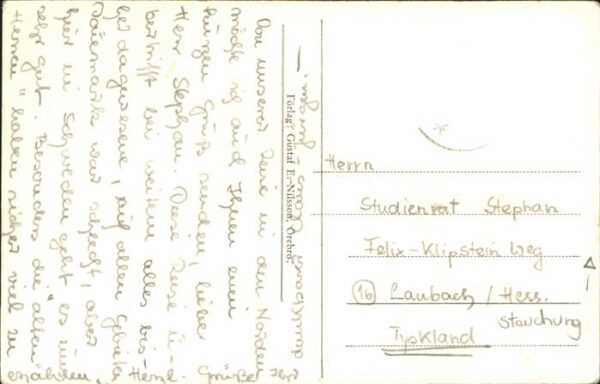 Von unserer Reise in den Norden
möchte ich auch Ihnen einen
kurzen Gruß senden, lieber
Herr Stephan. Diese Reise ü-
bertrifft bei weitem alles bis-
her dagewesene, auf allen Gebieten
Dänemark war schlecht, aber
hier in Schweden geht es uns
sehr gut. Besonders die "alten
Herren" haben sicher viel zu
erzählen.
Herzl. Grüße Ihr
Förlag: Gustaf E. Nilsson, Örebro.
Herrn
Studienrat Stephan
Felix-Klipstein Weg
(16) Laubach / Hess.
Stauchung
Tyskland